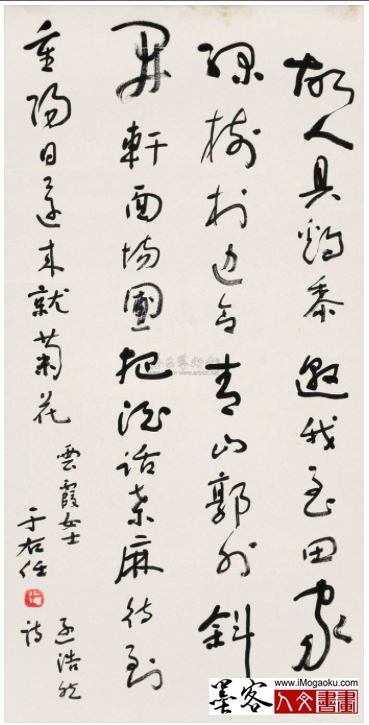 故人具鷄黍邀我至田家
綠樹村邊合青山郭外斜
開軒面場圃把酒話桑麻待到
重陽日還來就菊花
雲霞女士
于右任
孟浩然
詩
www.iMogaoku.com
墨客
人文書畫